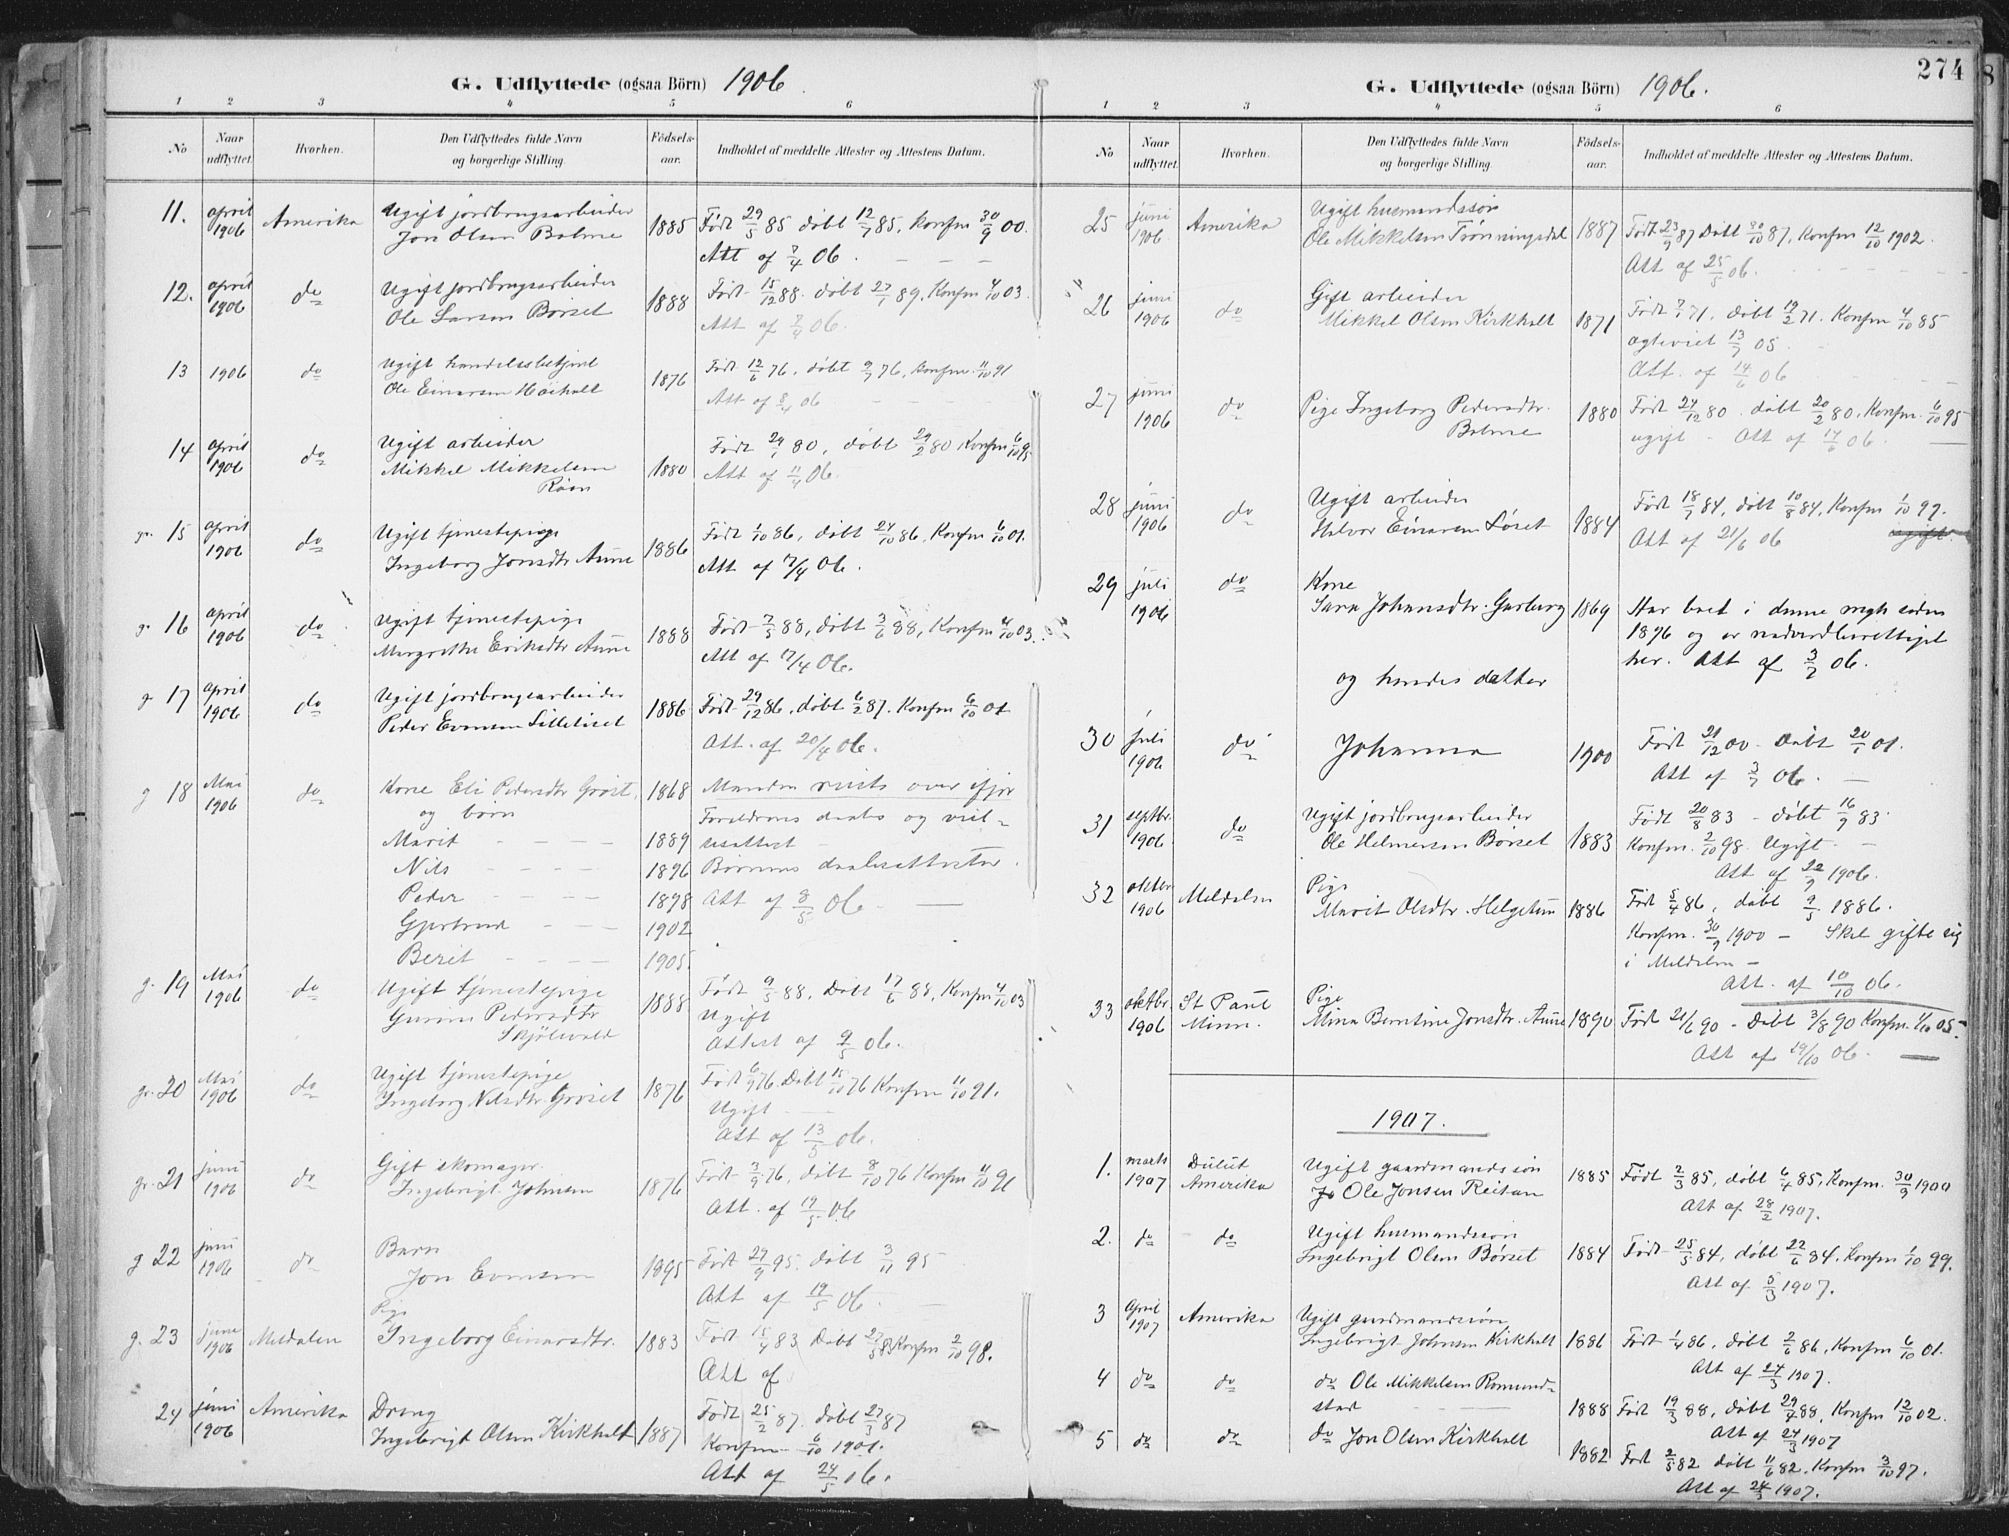 G. Udflyttede (ogsaa Börn) 1906.
1 2 3 4 5 6
No
Naar udflyttet.
Hvorhen.
Den Udflyttedes fulde Navn og borgerlige Stilling.
Födsels-aar.
Indholdet af meddelte Attester og Attestens Datum.
11. april 1906 Amerika Ugift jordbrugsarbeider
Jon Olsen Bolme 1885 Født 29/5 85 døbt 12/7 85, Konfm 30/9 00.
Att af 7/4 06.
12. april 1906 do Ugift jordbrugsarbeider
Ole Larsen Børset 1888 Født 15/12 88. døbt 27/1 89, Konfm 4/10 03.
Att af 7/4 06.
13 1906 do Ugift handelsbetjent
Ole Einarsen Høiholt 1876 Født 12/6 76, døbt 9/7 76, Konfm. 11/10 91
Att af 8/4 06
14 april 1906 do Ugift arbeider
Mikkel Mikkelsen
Røen 1880 Født 24/1 80, døbt 29/2 80 Konfm 6/10 95
Att af 11/4 06.
gr. 15 april 1906 do Ugift tjenestepige
Ingeborg Jonsdtr Aune 1886 Født 1/10 86, døbt 24/10 86, Konfm 6/10 01.
Att af 17/4 06.
g. 16 april 1906 do Ugift tjenestepige
Margrethe Eriksdtr Aune 1888 Født 7/5 88, døbt 3/6 88, Konfm 4/10 03.
Att af 17/4 06.
g. 17 april 1906 do Ugift jordbrugsarbeider
Peder Evensen Lilleliset 1886 Født 29/12 86, døbt 6/2 87. Konfm 6/10 01
Att. af 20/4 06.
g 18 Mai 1906 do Kone Eli Pedersdtr Grøset, 1868 Manden reiste over ifjor
og børn Forældrenes daabs og viel-
Marit 1889 sesattest
Nils 1896 Børnenes daabsattester.
Peder 1898 Att af 8/5 06
Gjertrud 1902
Berit 1905.
g. 19 Mai 1906 do Ugift tjenestepige
Gurine Pedersdtr
Skjølsvold 1888 Født 9/5 88, Døbt 17/6 88, Konfm 4/10 03
Ugift
Attest af 9/5 06.
gr. 20 Mai 1906 do Ugift tjenestepige
Ingeborg Nilsdtr Grøset 1876 Født 6/9 76. Døbt 15/10 76 Konfm 11/10 91.
Ugift
Att af 13/5 06.
gr. 21 juni 1906 do Gift skomager.
Ingebrigt Johnsen 1876 Født 3/9 76, døbt 8/10 76 Konfm 11/10 91
Att. af 19/5 06
g 22 juni 1906 do Barn
Jon Evensen 1895 Født 27/9 95. døbt 3/11 95
Att af 19/5 06.
g. 23 juni 1906 Meldalen Pige
Ingeborg Einarsdtr. 1883 Født 15/4 83 Døbt 27/5 83 Konfm 2/10 98.
Att af
24 juni 1906 Amerika Dreng
Ingebrigt Olsen Kirkholt 1887 Født 25/2 87. døbt 27/3 87
Konfm 6/10 1901.
Att af 24/5 06.
G. Udflyttede (ogsaa Börn) 1906.
274
1 2 3 4 5 6
No
Naar udflyttet.
Hvorhen.
Den Udflyttedes fulde Navn og borgerlige Stilling.
Födsels-aar.
Indholdet af meddelte Attester og Attestens Datum.
25 juni 1906 Amerika Ugift husmandssøn
Ole Mikkelsen Trønningsdal 1887 Født 23/9 87 Døbt 30/10 87, Konfm 12/10 1902.
Att af 25/5 06.
26 juni 1906 do Gift arbeider
Mikkel Olsen Kirkholt 1871 Født 7/1 71, døbt 19/2 71. Konfm 4/10 85
ægteviet 13/7 05.
Att. af 14/6 06
27 juni 1906 do Pige Ingeborg Pedersdtr.
Bolme 1880 Født 24/12 80. døbt 20/2 80, Konfm. 6/10 95
ugift - Att af 17/6 06.
28 juni 1906 do Ugift arbeider
Halvor Einarsen Løset 1884 Født 18/7 84, døbt 10/8 84, Konfm 1/10 99.
Att af 21/6 06 ugift
29 juli 1906 do Kone
Sara Johansdtr. Garberg 1869 Har boet i denne megh siden
1896 og er nadverdberettiget
her. Att af 3/7 06.
og hendes datter
30 juli 1906 do Johanna 1900 Født 21/12 00 Døbt 20/1 01.
Att af 3/7 06.
31 septbr. 1906 do Ugift jordbrugsarbeider
Ole Helmersen Børset 1883 Født 20/8 83 - døbt 16/9 83.
Konfm. 2/10 98. Ugift
Att af 22/9 1906.
32 oktbr 1906 Meldalen Pige
Marit Olsdtr. Helgetun 1886 Født 5/4 86, døbt 9/5 1886.
Konfm. 30/9 1900 - Skal gifte sig
i Meldalen -
Att. af 10/10 06.
33 oktbr 1906 St Paul Minn. Pige
Mina Berntine Jonsdtr. Aune 1890 Født 21/6 90 - Døbt 3/8 90 Konfm. 1/10 05.
Att af 19/10 06.
1907.
1. marts 1907 Dulut Amerika Ugift gaardmandssøn
Jo Ole Jonsen Reitan 1885 Født 2/3 85, døbt 6/4 85, Konfm. 30/9 1900
Att af 28/2 1907.
2. do do Ugift husmandssøn
Ingebrigt Olsen Børset 1884 Født 25/5 84, døbt 22/6 84, Konfm 1/10 99.
Att af 5/3 1907.
3 April 1907 Amerika Ugift gardmandssøn
Ingebrigt Johnsen Kirkholt 1886 Født 1/4 86, døbt 2/6 86, Konfm 6/10 01.
Att af 24/3 1907.
4 do do do Ole Mikkelsen Romund-
stad 1888 Født 19/3 88, døbt 29/4 88, Konfm 12/10 02.
Att af 24/3 1907
5 do do do Jon Olsen Kirkholt 1882 Født 2/5 82 døbt 11/6 82, Konfm 3/10 97.
Att af 24/3 1907.